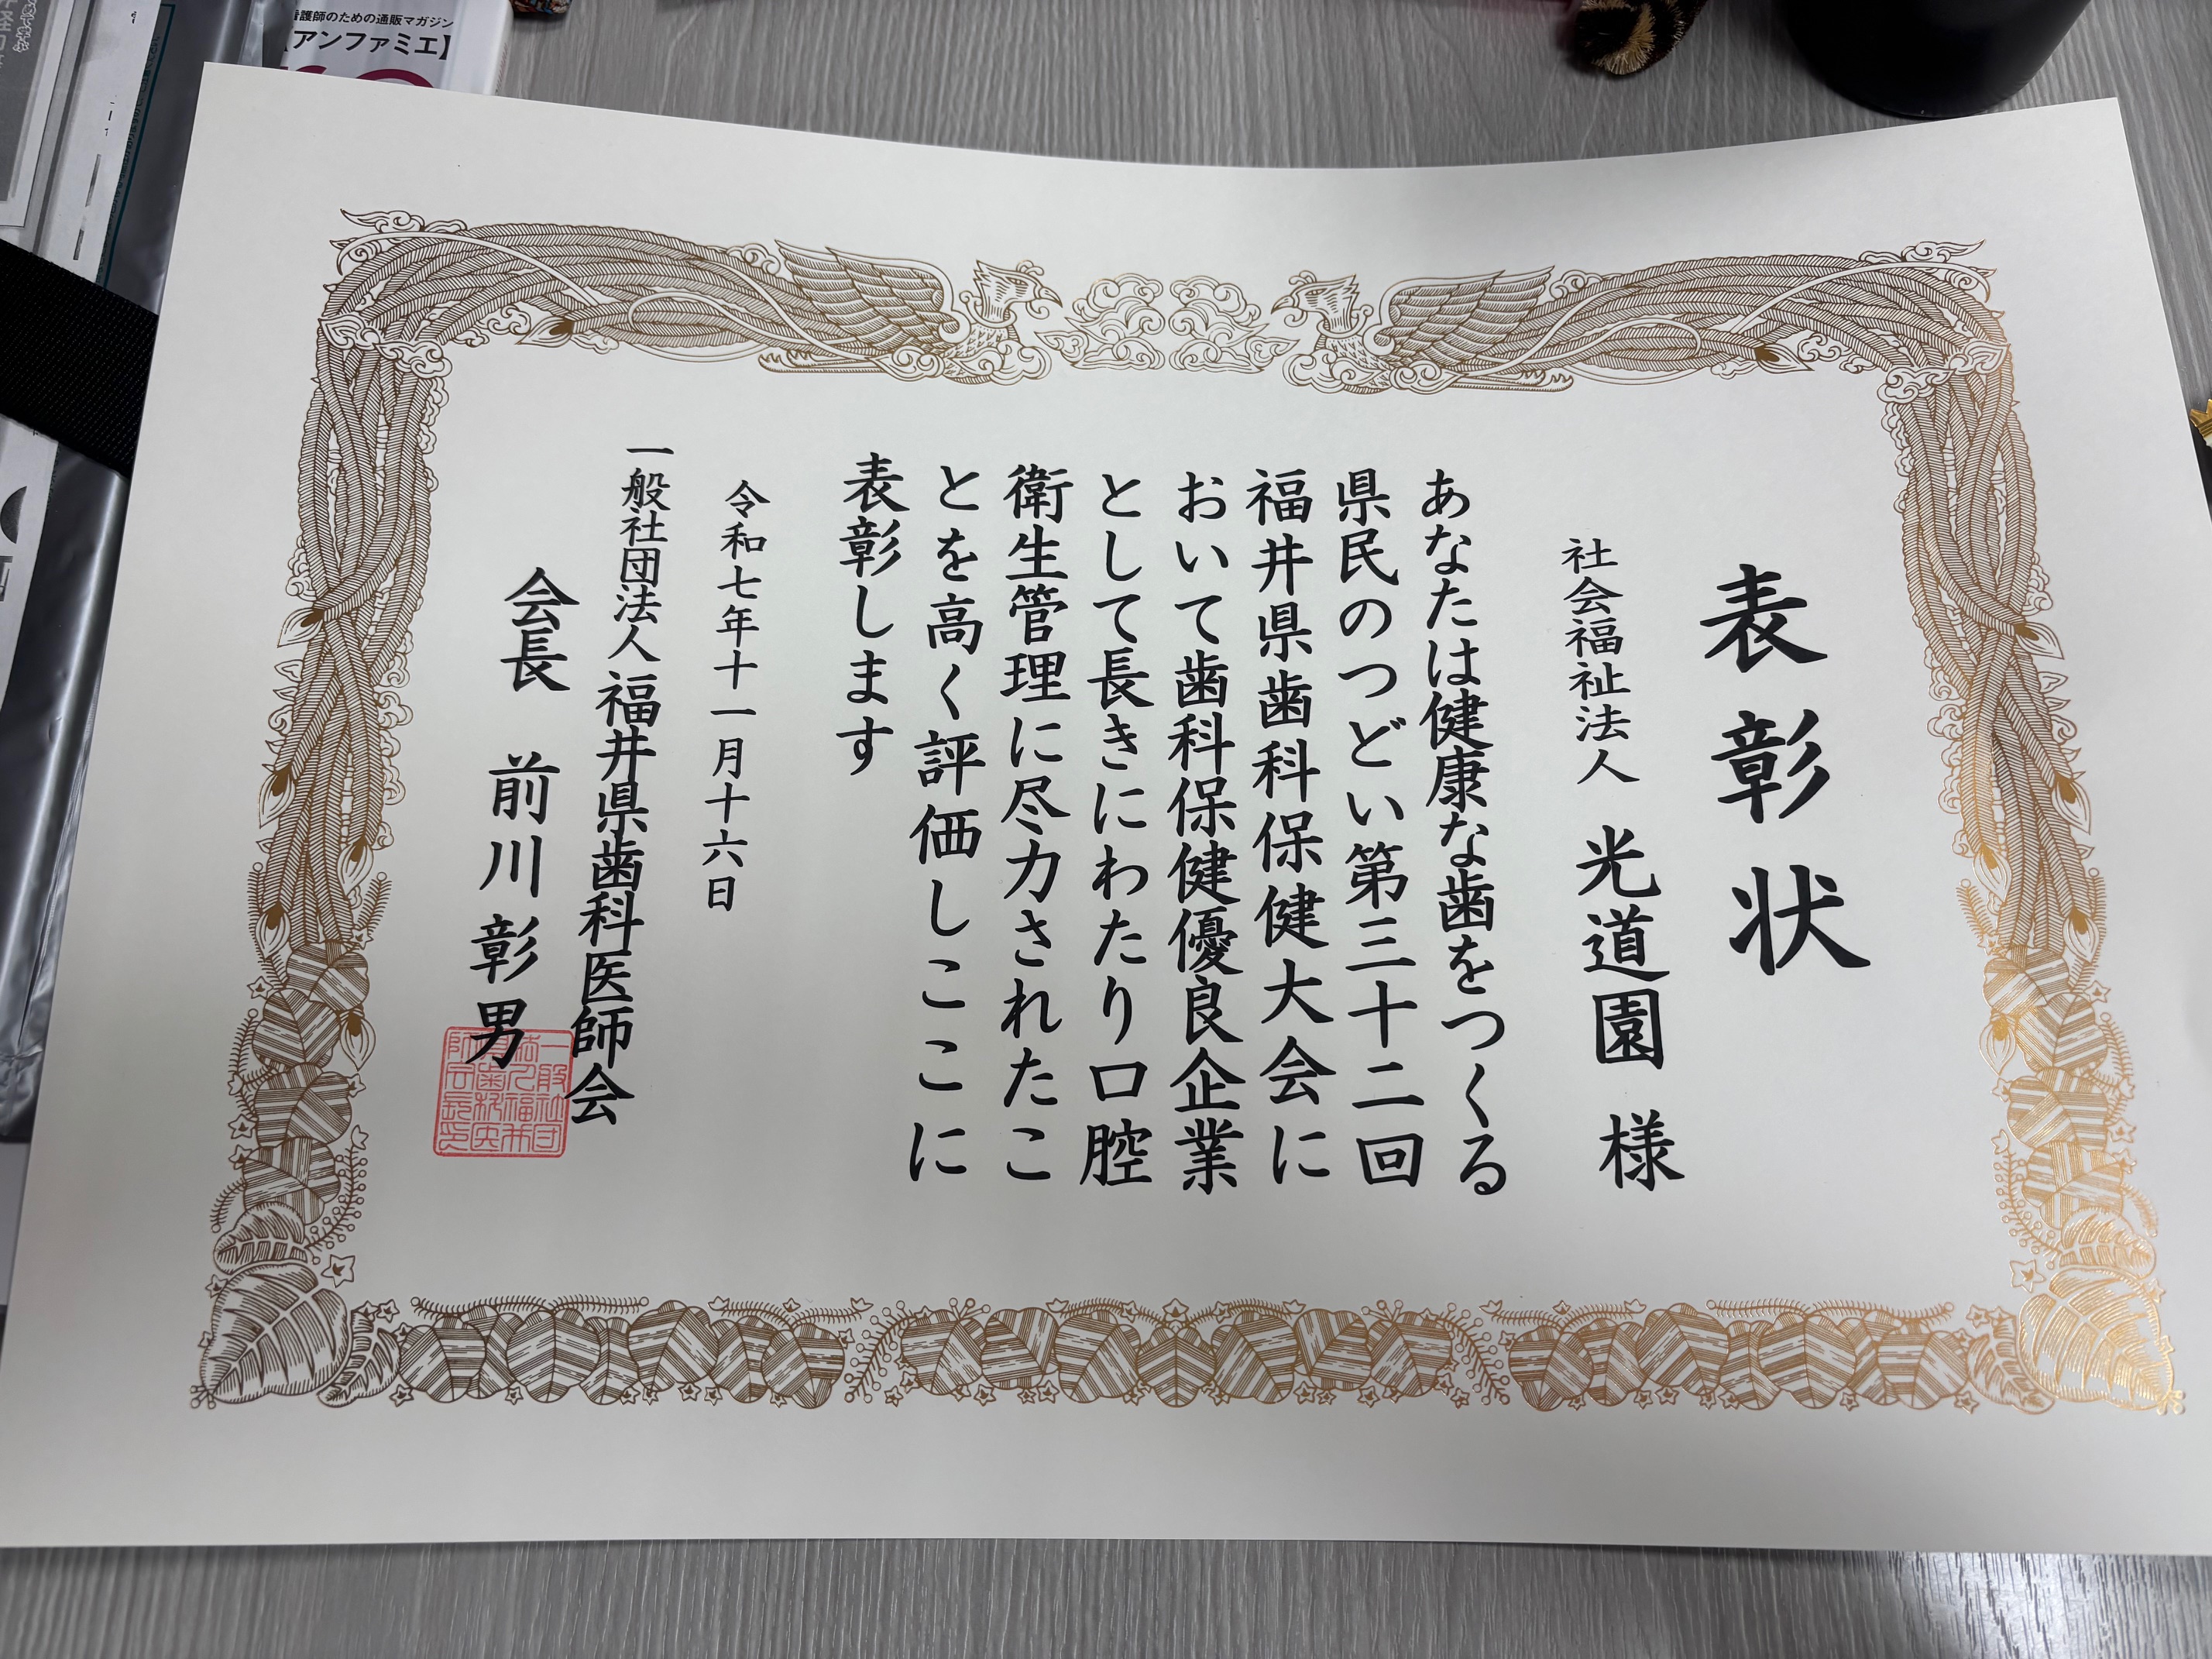 表彰状
社会福祉法人 光道園 様
あなたは健康な歯をつくる
県民のつどい第三十二回
福井県歯科保健大会に
おいて歯科保健優良企業
として長きにわたり口腔
衛生管理に尽力されたこ
とを高く評価しここに
表彰します
令和七年十一月十六日
一般社団法人 福井県歯科医師会
会長 前川彰男
看護師のための通販マガジン
【アンファミエ】